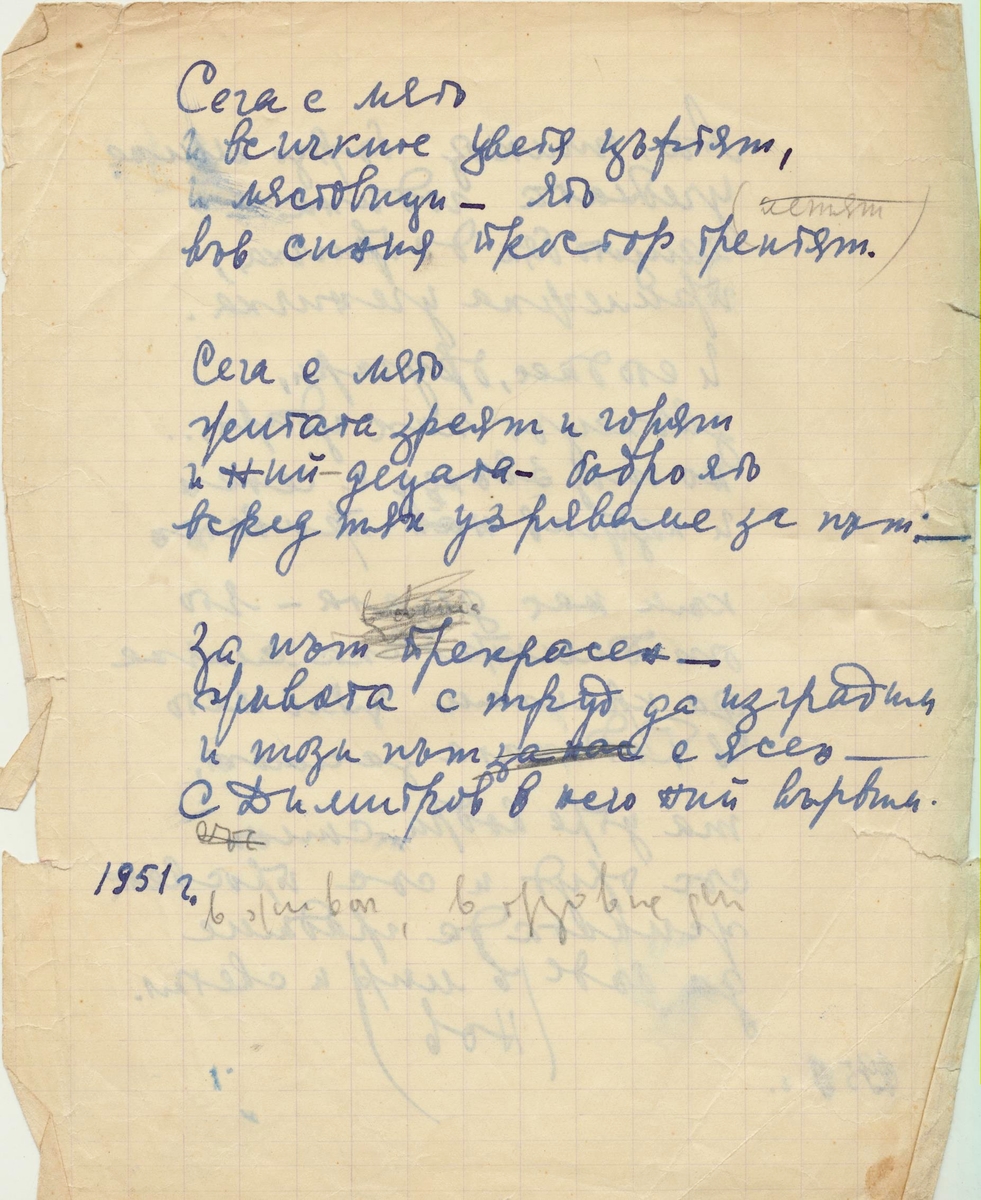 Сега е лято
и всичките цветя цъфтят,
и лястовици – ято (летят)
във синия простор трептят.
Сега е лято
житата зреят и горят
и ний – децата – бодро ято
всред тях узряваме за път: –
За път прекрасен –
живота с труд да изградим
и този път за нас е ясен –
С Димитров в него ний вървим.
1951 г.
в живот,